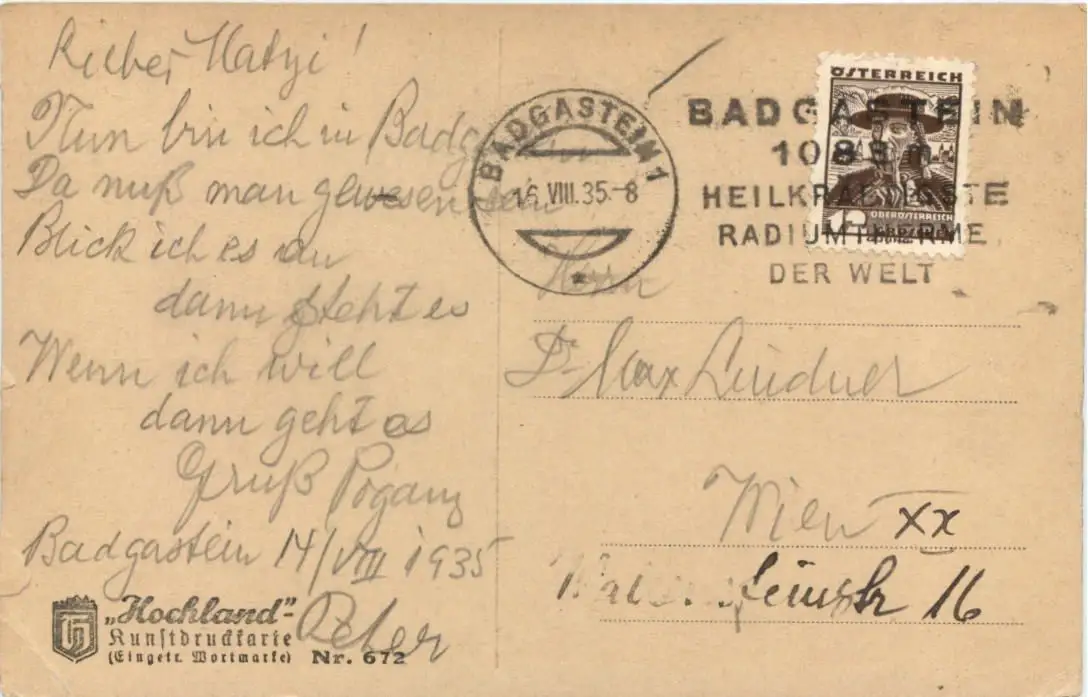 Lieber Matzi!
Nun bin ich in Badgastein
Da muß man gewesen sein
Blick ich es an
dann steht es
Wenn ich will
dann geht es
Gruß Pogany
Badgastein 14/VIII 1935
Peter
„Hochland"-
Kunstdruckkarte
(Eingetr. Wortmarke) Nr. 672
BADGASTEIN 1
16.VIII.35-8
*
BADGASTEIN
1083 m
HEILKRÄFTIGSTE
RADIUMTHERME
DER WELT
ÖSTERREICH
OBERÖSTERREICH
Herrn
Dr Max Lindner
Wien XX
16